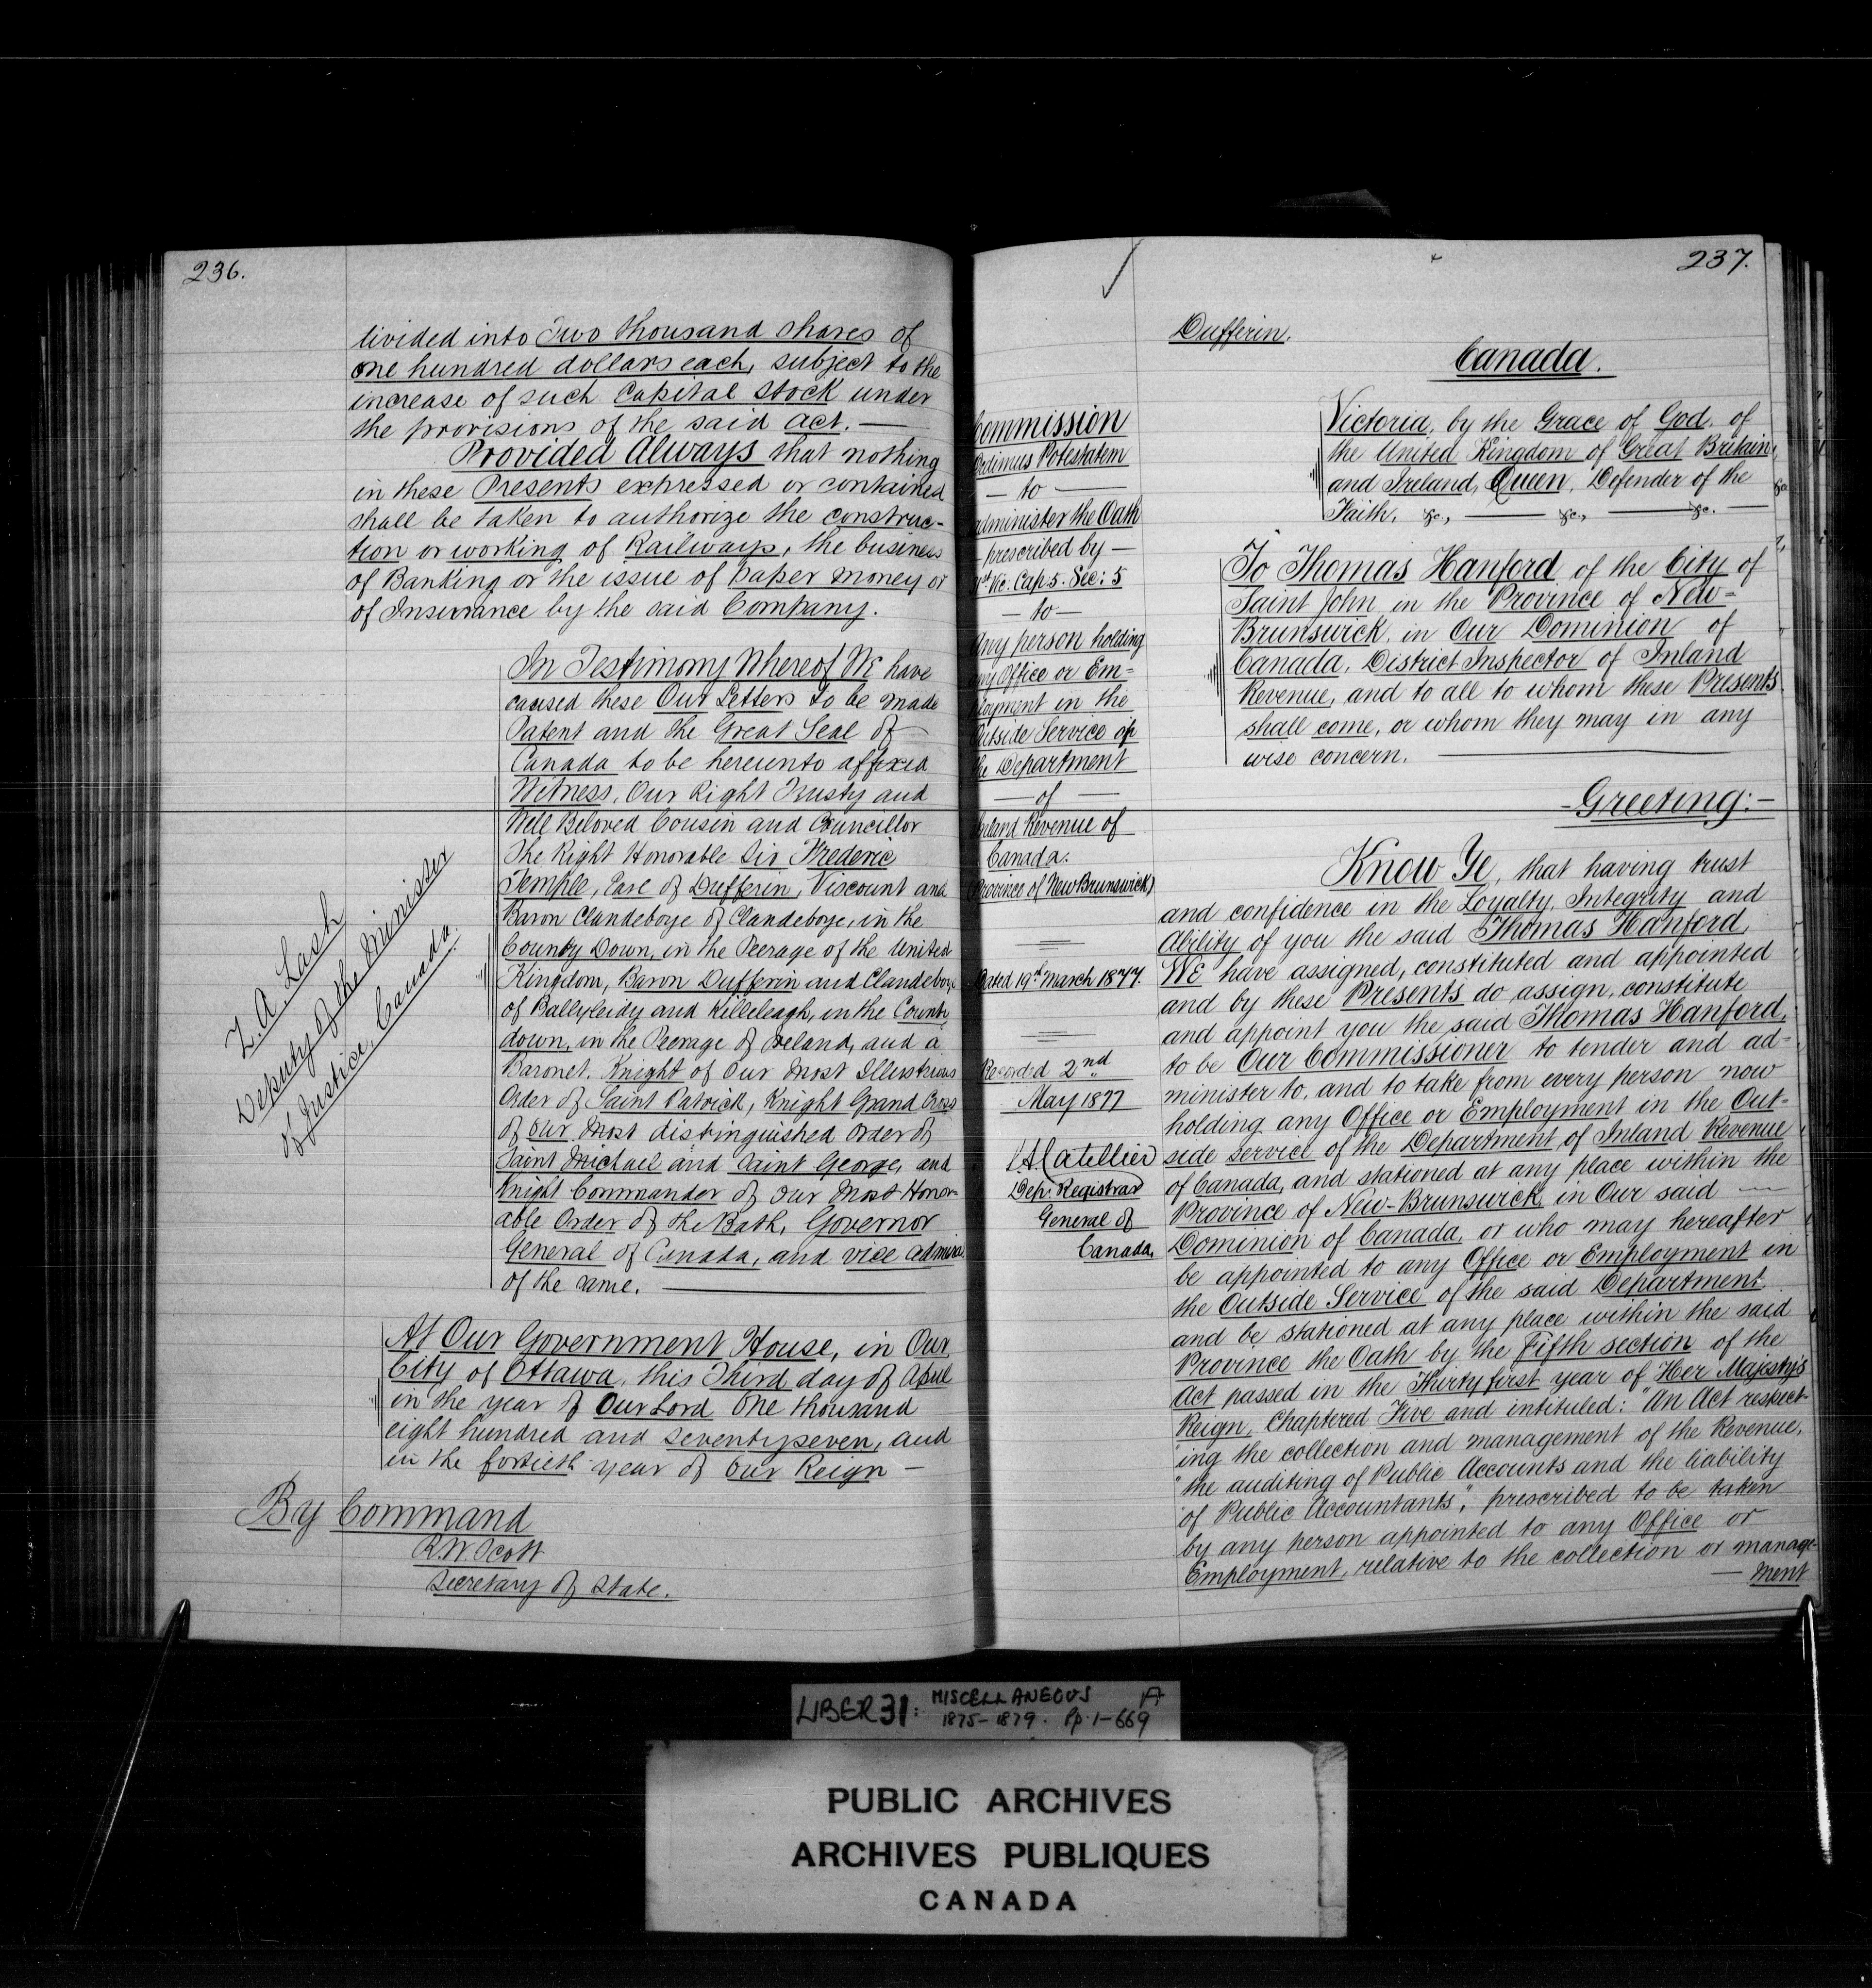 236.
divided into Two thousand shares of
one hundred dollars each, subject to the
increase of such Capital Stock under
the provisions of the said Act. —
Provided Always that nothing
in these Presents expressed or contained
shall be taken to authorize the construc-
tion or working of Railways, the business
of Banking or the issue of paper money or
of Insurance by the said Company.
In Testimony Whereof We have
caused these Our Letters to be made
Patent and the Great Seal of
Canada to be hereunto affixed
Witness, Our Right Trusty and
Well Beloved Cousin and Councillor
The Right Honorable Sir Frederic
Temple, Earl of Dufferin, Viscount and
Baron Clandeboye of Clandeboye, in the
County Down, in the Peerage of the United
Kingdom, Baron Dufferin and Clandeboye
of Ballyleidy and Killeleagh, in the County
down, in the Peerage of Ireland, and a
Baronet, Knight of Our Most Illustrious
Order of Saint Patrick, Knight Grand Cross
of Our Most distinguished Order of
Saint Michael and Saint George, and
Knight Commander of Our Most Honor-
able Order of the Bath, Governor
General of Canada, and vice admiral
of the same. —
At Our Government House, in Our
City of Ottawa, this Third day of April
in the year of Our Lord One thousand
eight hundred and seventyseven, and
in the fortieth year of Our Reign —
By Command
R.W. Scott
Secretary of State.
Z.A. Lash
Deputy of the Minister
of Justice, Canada.
237.
Dufferin.
Canada.
Commission
Dedimus Potestatem
— to —
administer the Oath
— prescribed by —
31st Vic. Cap. 5. Sec: 5
— to —
Any person holding
any Office or Em=
ployment in the
Outside Service of
the Department
— of —
Inland Revenue of
Canada.
(Province of New Brunswick)
Dated 19th March 1877.
Recorded 2nd
May 1877
Catellier
Dep. Registrar
General of
Canada.
Victoria, by the Grace of God, of
the United Kingdom of Great Britain
and Ireland, Queen, Defender of the
Faith, &c., — &c., — &c. — &c
To Thomas Hanford of the City of
Saint John in the Province of New=
Brunswick, in Our Dominion of
Canada, District Inspector of Inland
Revenue, and to all to whom these Presents
shall come, or whom they may in any
wise concern. —
- Greeting:-
Know Ye, that having trust
and confidence in the Loyalty, Integrity and
Ability of you the said Thomas Hanford,
We have assigned, constituted and appointed
and by these Presents do assign, constitute
and appoint you the said Thomas Hanford,
to be Our Commissioner to tender and ad=
minister to, and to take from every person now
holding any Office or Employment in the Out=
side service of the Department of Inland Revenue
of Canada, and stationed at any place within the
Province of New-Brunswick in Our said —
Dominion of Canada, or who may hereafter
be appointed to any Office or Employment in
the Outside Service of the said Department
and be stationed at any place within the said
Province the Oath by the Fifth section of the
Act passed in the Thirty first year of Her Majesty's
Reign, Chaptered Five and intituled: "An Act respect-
"ing the collection and management of the Revenue,
"the auditing of Public Accounts and the liability
"of Public Accountants", prescribed to be taken
by any person appointed to any Office or
Employment, relative to the collection or manage-
— ment
LIBER 31: MISCELLANEOUS A
1875-1879. Pp. 1-669
PUBLIC ARCHIVES
ARCHIVES PUBLIQUES
CANADA